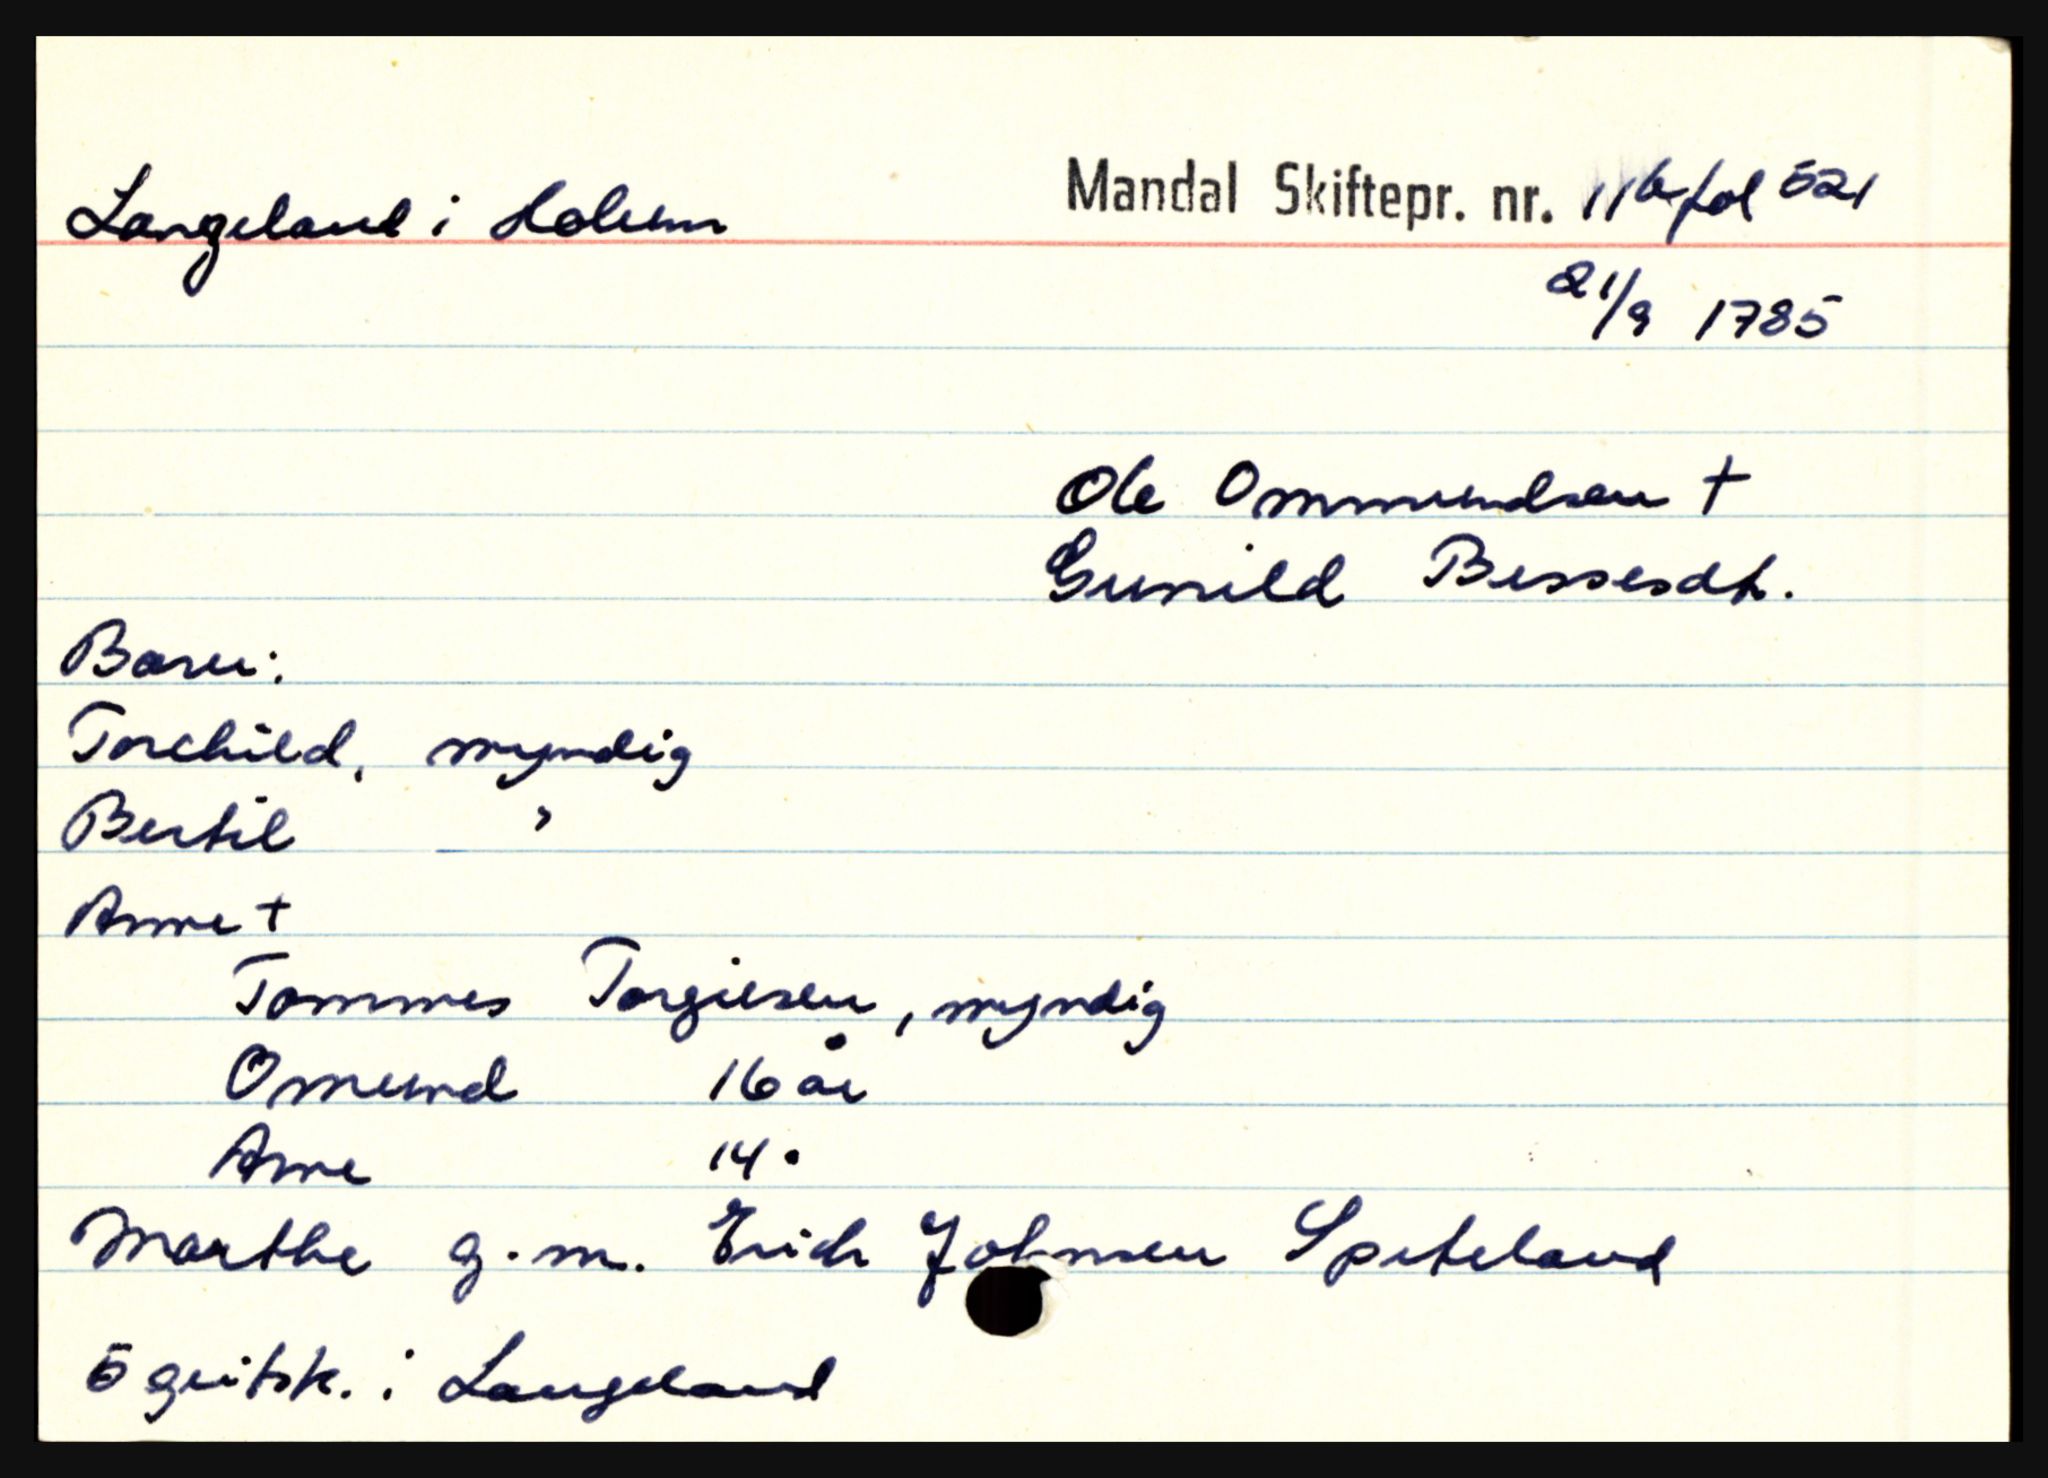 Langeland i Holum
Mandal Skiftepr. nr. 11b fol 521
21/9 1785
Ole Ommundsen †
Gunild Bessesdt.
Barn:
Torchild, myndig
Bertil "
Anne †
Tommes Torgiesen, myndig
Omund 16 år
Anne 14 "
Marthe g.m. Erich Johnsen Spiteland
5 geitsk. i Langeland